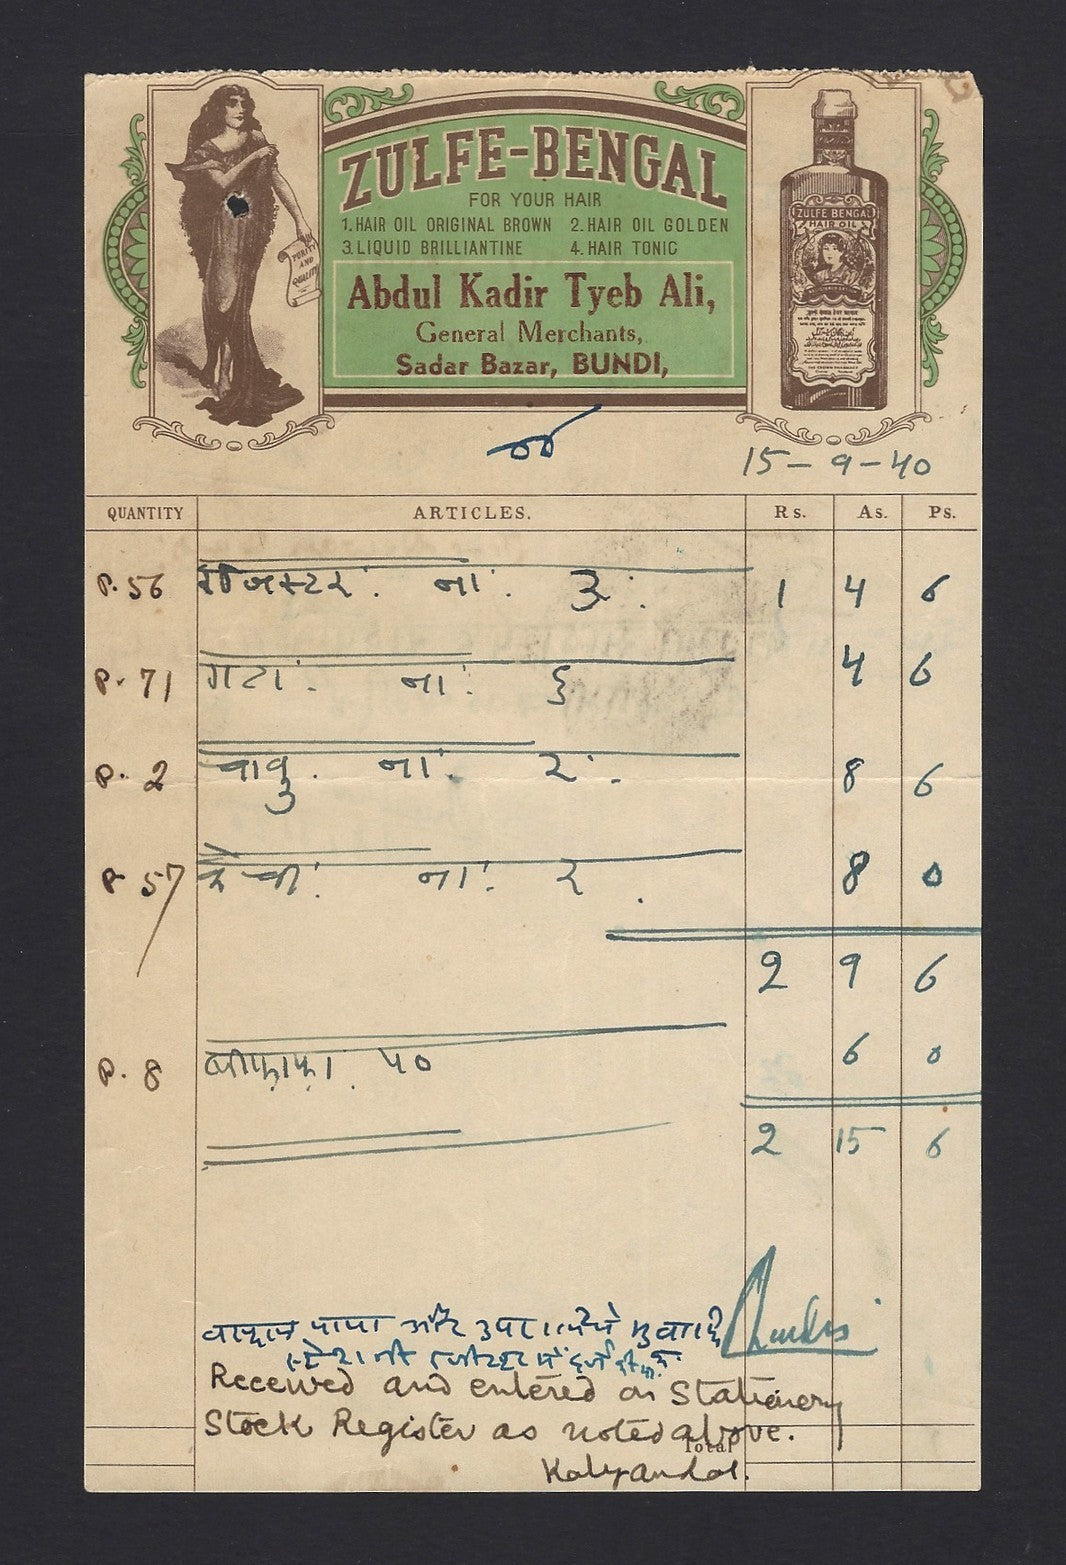 ZULFE-BENGAL
FOR YOUR HAIR
1. HAIR OIL ORIGINAL BROWN 2. HAIR OIL GOLDEN
3. LIQUID BRILLIANTINE 4. HAIR TONIC
Abdul Kadir Tyeb Ali,
General Merchants,
Sadar Bazar, BUNDI,
PURITY
AND
QUALITY
ZULFE BENGAL
HAIR OIL
15-9-40
QUANTITY ARTICLES. Rs. As. Ps.
P. 56 रजिस्टर नां 3 1 4 6
P. 71 गटा नां ६ 4 6
P. 2 चाकु नां २ 8 6
P 57 केची नां २ 8 0
2 9 6
P. 8 लीफाफा ५० 6 0
2 15 6
पाया और
Received and entered on Stationery
Stock Register as noted above.
Total
Kalyandas.